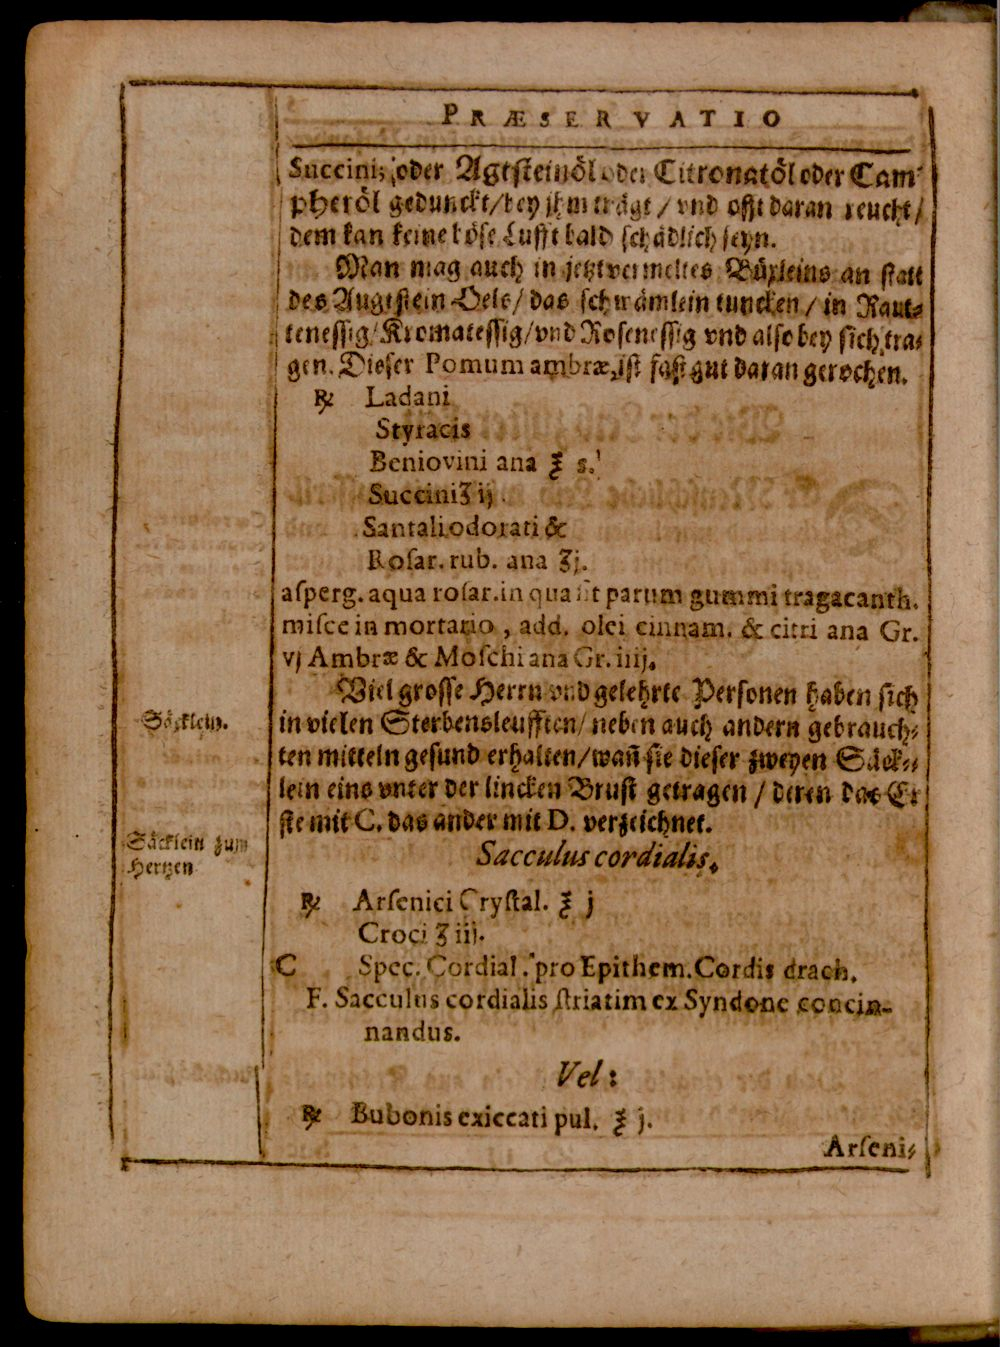 PRÆSERVATIO
Succini; oder Agtsteinöl oder Citronatöl oder Cam-
pheröl gedunckt/bey jhm trägt/vnd offt daran reucht/
dem kan keine böse Lufft bald schädlich seyn.
Man mag auch in jetztvermeltes Büxleins an statt
des Augtstein Oels/das schwämlein tuncken/in Raut-
tenessig/Kromatessig/vnd Rosenessig vnd also bey sich tra-
gen. Dieser Pomum ambræ, ist fast gut daran gerochen.
℞ Ladani
Styracis
Beniovini ana ℥ s.
Succini ʒ ij.
Santali odorati &
Roſar. rub. ana ʒj.
aſperg. aqua roſar. in qua ſit parum gummi tragacanth.
miſce in mortario, add. olei cinnam. & citri ana Gr.
vj Ambræ & Moſchi ana Gr. iiij.
Viel grosse Herrn vnd gelehrte Personen haben sich
Säcklein.
in vielen Sterbensleufften/neben auch andern gebrauch-
ten mitteln gesund erhalten/wañ sie dieser zweyen Säck-
lein eins vnter der lincken Brust getragen/deren das Er
ste mit C. das ander mit D. verzeichnet.
Säcklein zum
Hertzen
Sacculus cordialis.
℞ Arſenici Cryſtal. ℥ j
Croci ʒ iij.
C Spec. Cordial. pro Epithem. Cordis drach.
F. Sacculus cordialis ſtriatim ex Syndone concin-
nandus.
Vel:
℞ Bubonis exiccati pul. ℥ j.
Arſeni-